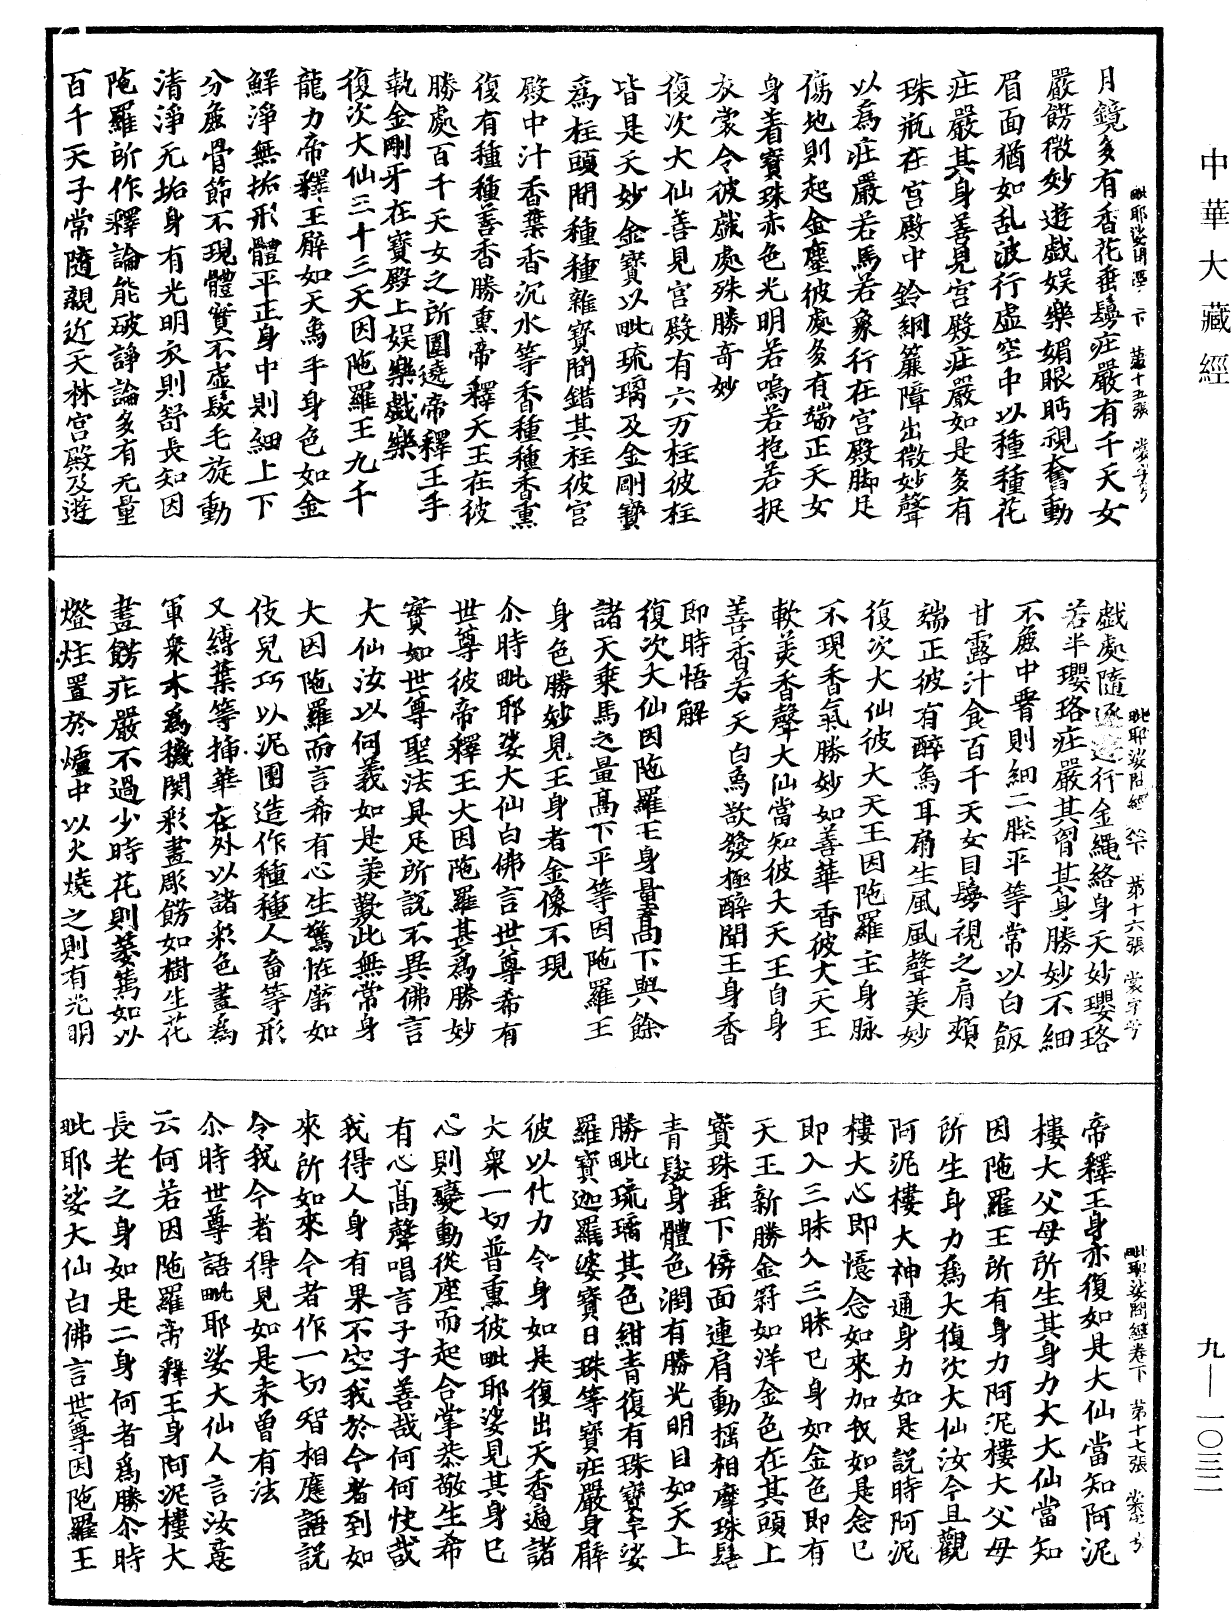 中華大藏經
九—一〇三二
月鏡多有香花垂鬘疘嚴有千天女
嚴餝微妙遊戲娛樂媚眼眄視奮動
眉面猶如乱波行虛空中以種種花
疘嚴其身善見宮殿疘嚴如是多有
珠瓶在宮殿中鈴網簾障出微妙聲
以為疘嚴若馬若象行在宮殿脚足
傷地則起金塵彼處多有端正天女
身著寶珠赤色光明若嗚若抱若捉
衣裳令彼戲處殊勝奇妙
復次大仙善見宮殿有六万柱彼柱
皆是天妙金寶以毗琉璃及金剛寶
為柱頭間種種雜寶間錯其柱彼宮
殿中汁香葉香沉水等香種種香熏
復有種種善香勝熏帝釋天王在彼
勝處百千天女之所圍遶帝釋王手
執金剛牙在寶殿上娛樂戲樂
復次大仙三十三天因陁羅王九千
龍力帝釋王𦡀如天象手身色如金
鮮淨無垢形體平正身中則細上下
分麁骨節不現體實不虛髮毛旋動
清淨无垢身有光明衣則舒長知因
陁羅所作釋論能破諍論多有无量
百千天子常隨親近天林宮殿及遊
毗耶娑問經卷下 第十六張 裳字号
戲處隨逐遊行金繩絡身天妙瓔珞
若半瓔珞疘嚴其胷其身勝妙不細
不麁中臋則細二䏶平等常以白飯
甘露汁食百千天女目鬘視之肩頰
端正彼有醉象耳扇生風風聲美妙
復次大仙彼大天王因陁羅王身脉
不現香氣勝妙如善華香彼大天王
軟美香聲大仙當知彼大天王自身
善香若天白象欲發極醉聞王身香
即時悟解
復次大仙因陁羅王身量高下與餘
諸天乘馬之量高下平等因陁羅王
身色勝妙見王身者金像不現
尒時毗耶娑大仙白佛言世尊希有
世尊彼帝釋王大因陁羅甚為勝妙
實如世尊聖法具足所說不異佛言
大仙汝以何義如是美歎此無常身
大因陁羅而言希有心生驚恠譬如
伎兒巧以泥團造作種種人畜等形
又縛葉等揷華在外以諸彩色畫為
軍衆木為機関彩畫彫餝如樹生花
畫餝疘嚴不過少時花則萎蔫如以
燈炷置於爐中以火燒之則有光明
毗耶娑問經卷下 第十七張 裳字号
帝釋王身亦復如是大仙當知阿泥
樓大父母所生其身力大大仙當知
因陁羅王所有身力阿泥樓大父母
所生身力為大復次大仙汝今且觀
阿泥樓大神通身力如是說時阿泥
樓大心即憶念如來加我如是念已
即入三昧入三昧已身如金色即有
天王新勝金㝴如洋金色在其頭上
寶珠垂下傍面連肩動摇相摩珠髻
青髮身體色潤有勝光明目如天上
勝毗琉璃其色紺青復有珠寶牟娑
羅寶迦羅婆寶日珠等寶疘嚴身𦡀
彼以化力令身如是復出天香遍諸
大衆一切普熏彼毗耶娑見其身已
心則變動從座而起合掌恭敬生希
有心高聲唱言子子善哉何何快哉
我得人身有果不空我於今者到如
來所如來今者作一切智相應語說
令我今者得見如是未曾有法
尒時世尊語毗耶娑大仙人言汝意
云何若因陁羅帝釋王身阿泥樓大
長老之身如是二身何者為勝尒時
毗耶娑大仙白佛言世尊因陁羅王